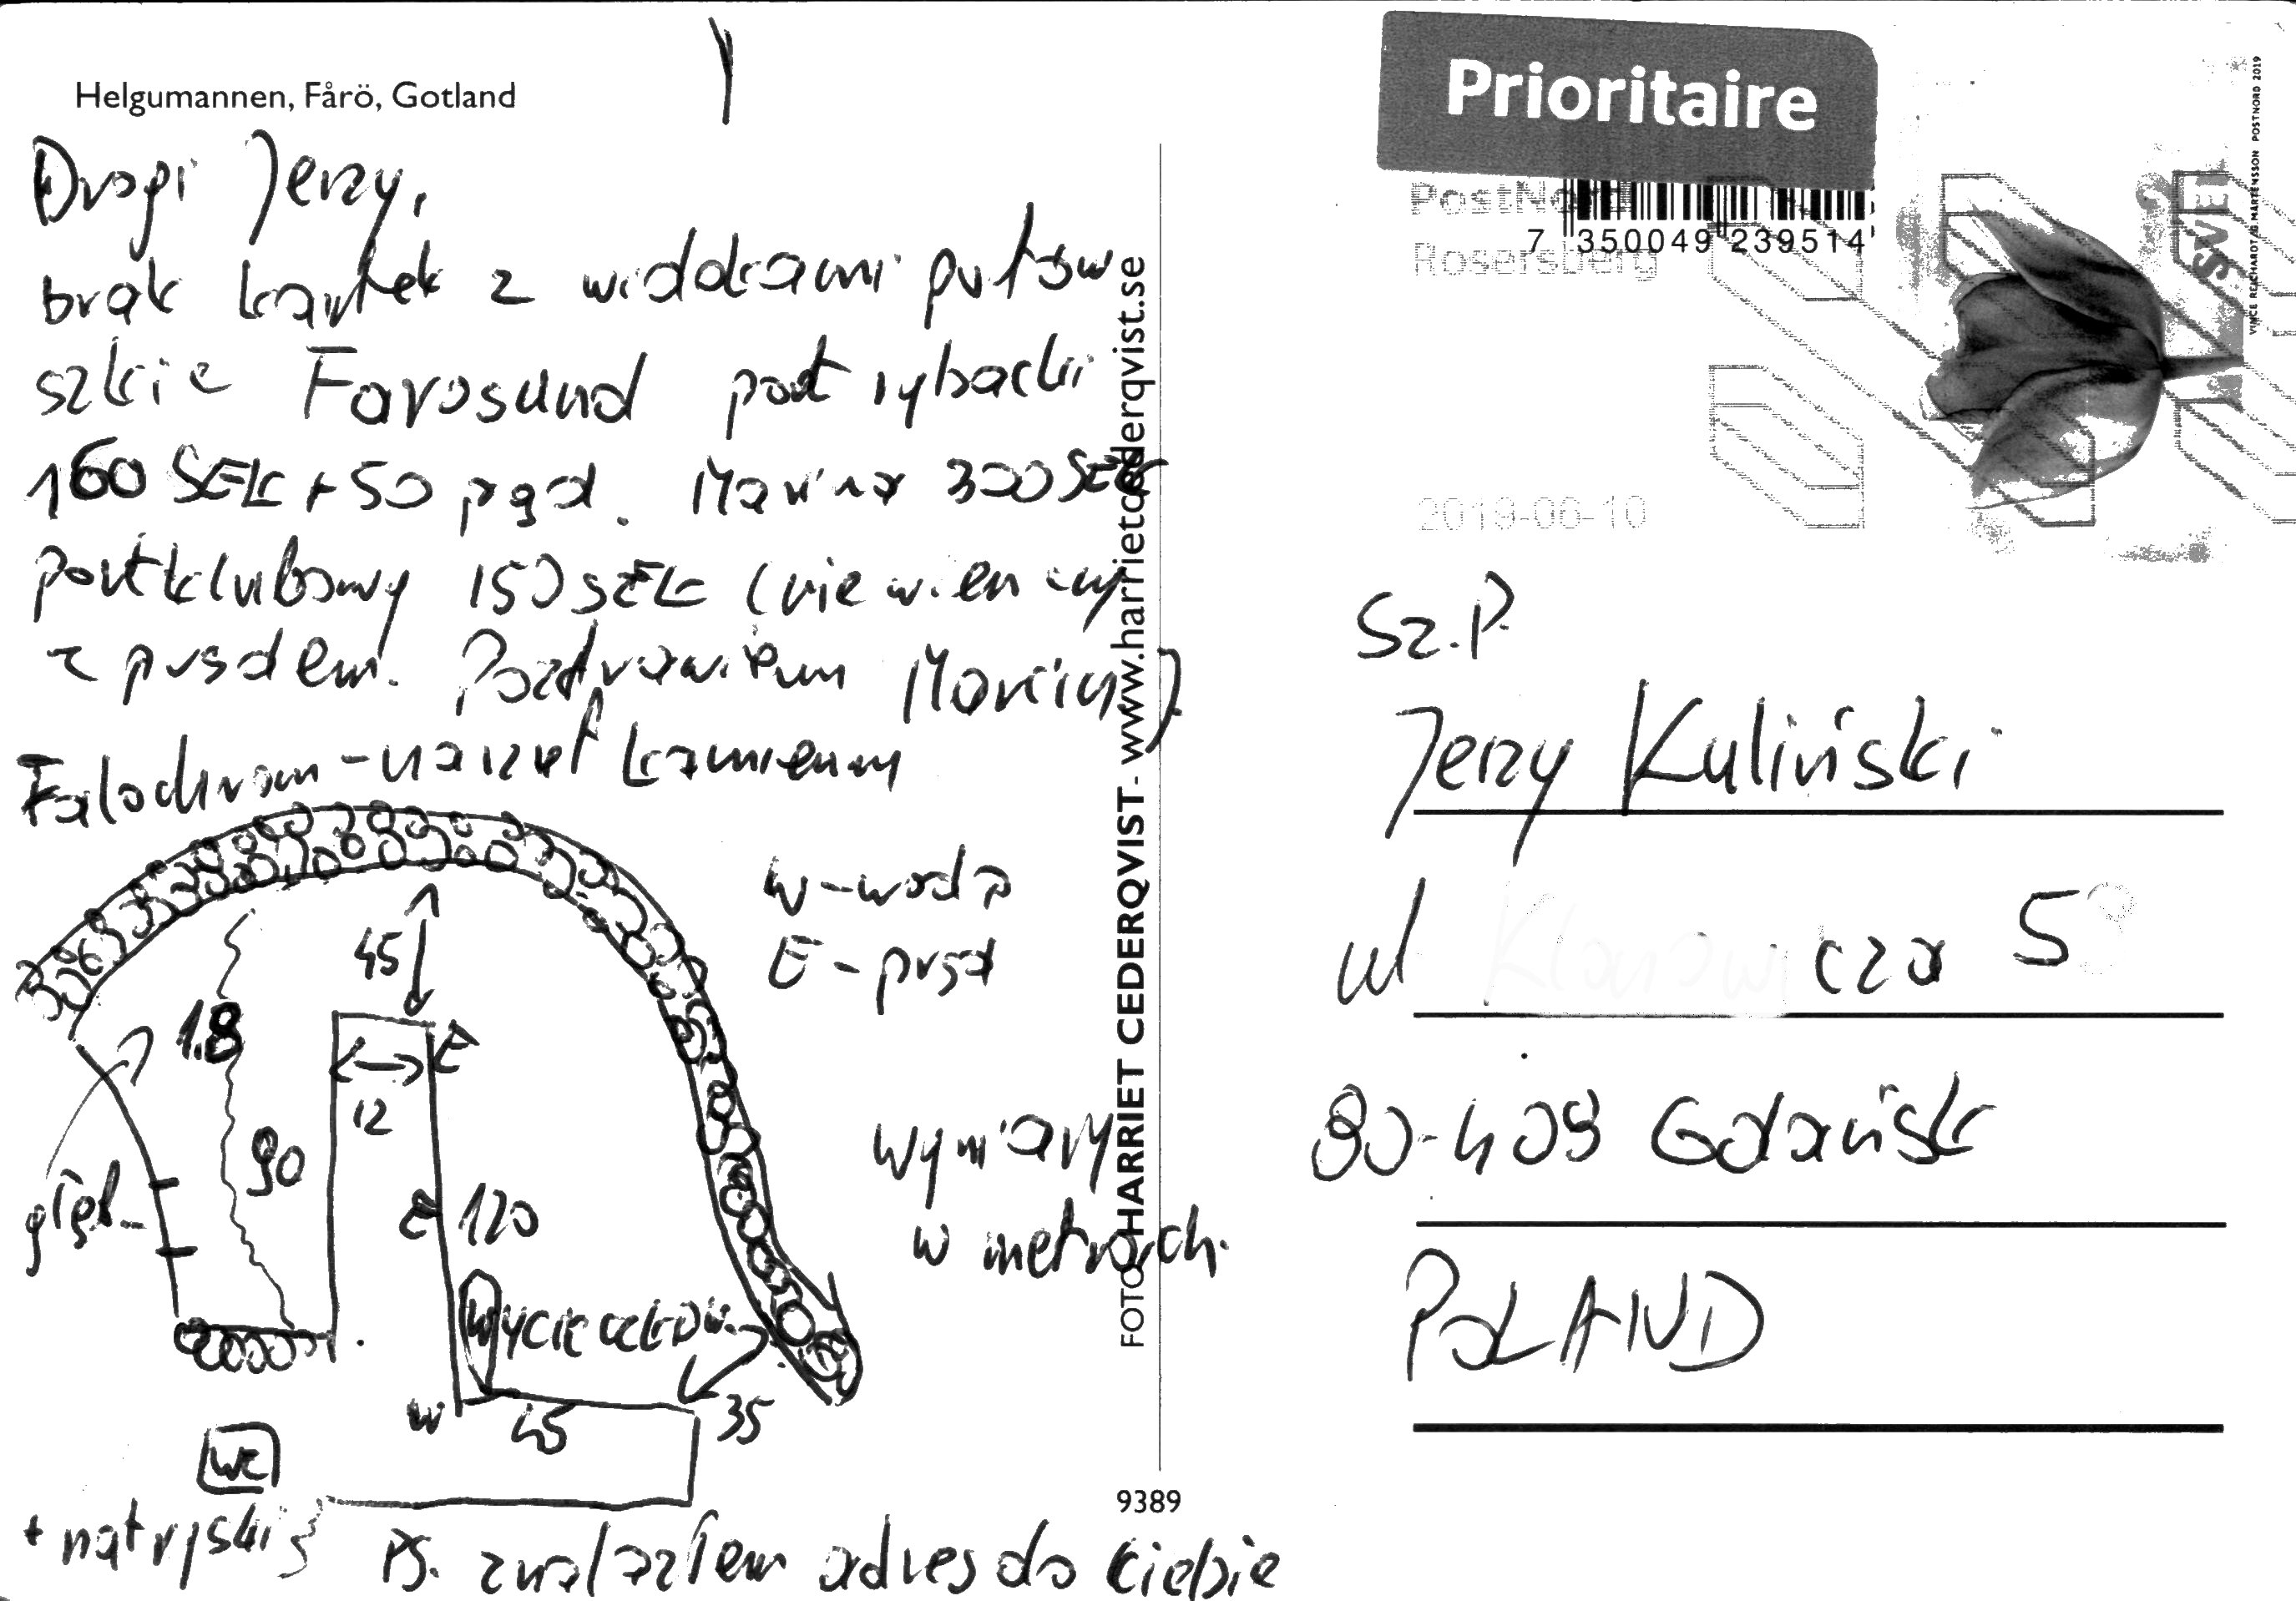 Helgumannen, Fårö, Gotland
Drogi Jerzy,
brak kartek z widokami portów
szkic Farosund port rybacki
160 SEK + 50 prąd. Marina 300 SEK
port klubowy 150 SEK (nie wiem czy
z prądem. Pozdrawiam Marcin)
Falochron - narzut kamienny
W - woda
E - prąd
45
1.8
E
12
90
głęb.
E 120
wymiary
w metrach.
wycieczkow.
W
45
35
WC
+ natryski
PS. znalazłem adres do Ciebie
FOTO HARRIET CEDERQVIST - www.harrietcederqvist.se
9389
Prioritaire
PostNord
Rosersberg
7 350049 239514
2019-06-10
SVE
VINCE REICHARDT/G MÅRTENSSON POSTNORD 2019
Sz.P.
Jerzy Kuliński
ul Klonowicza 5
80-409 Gdańsk
POLAND